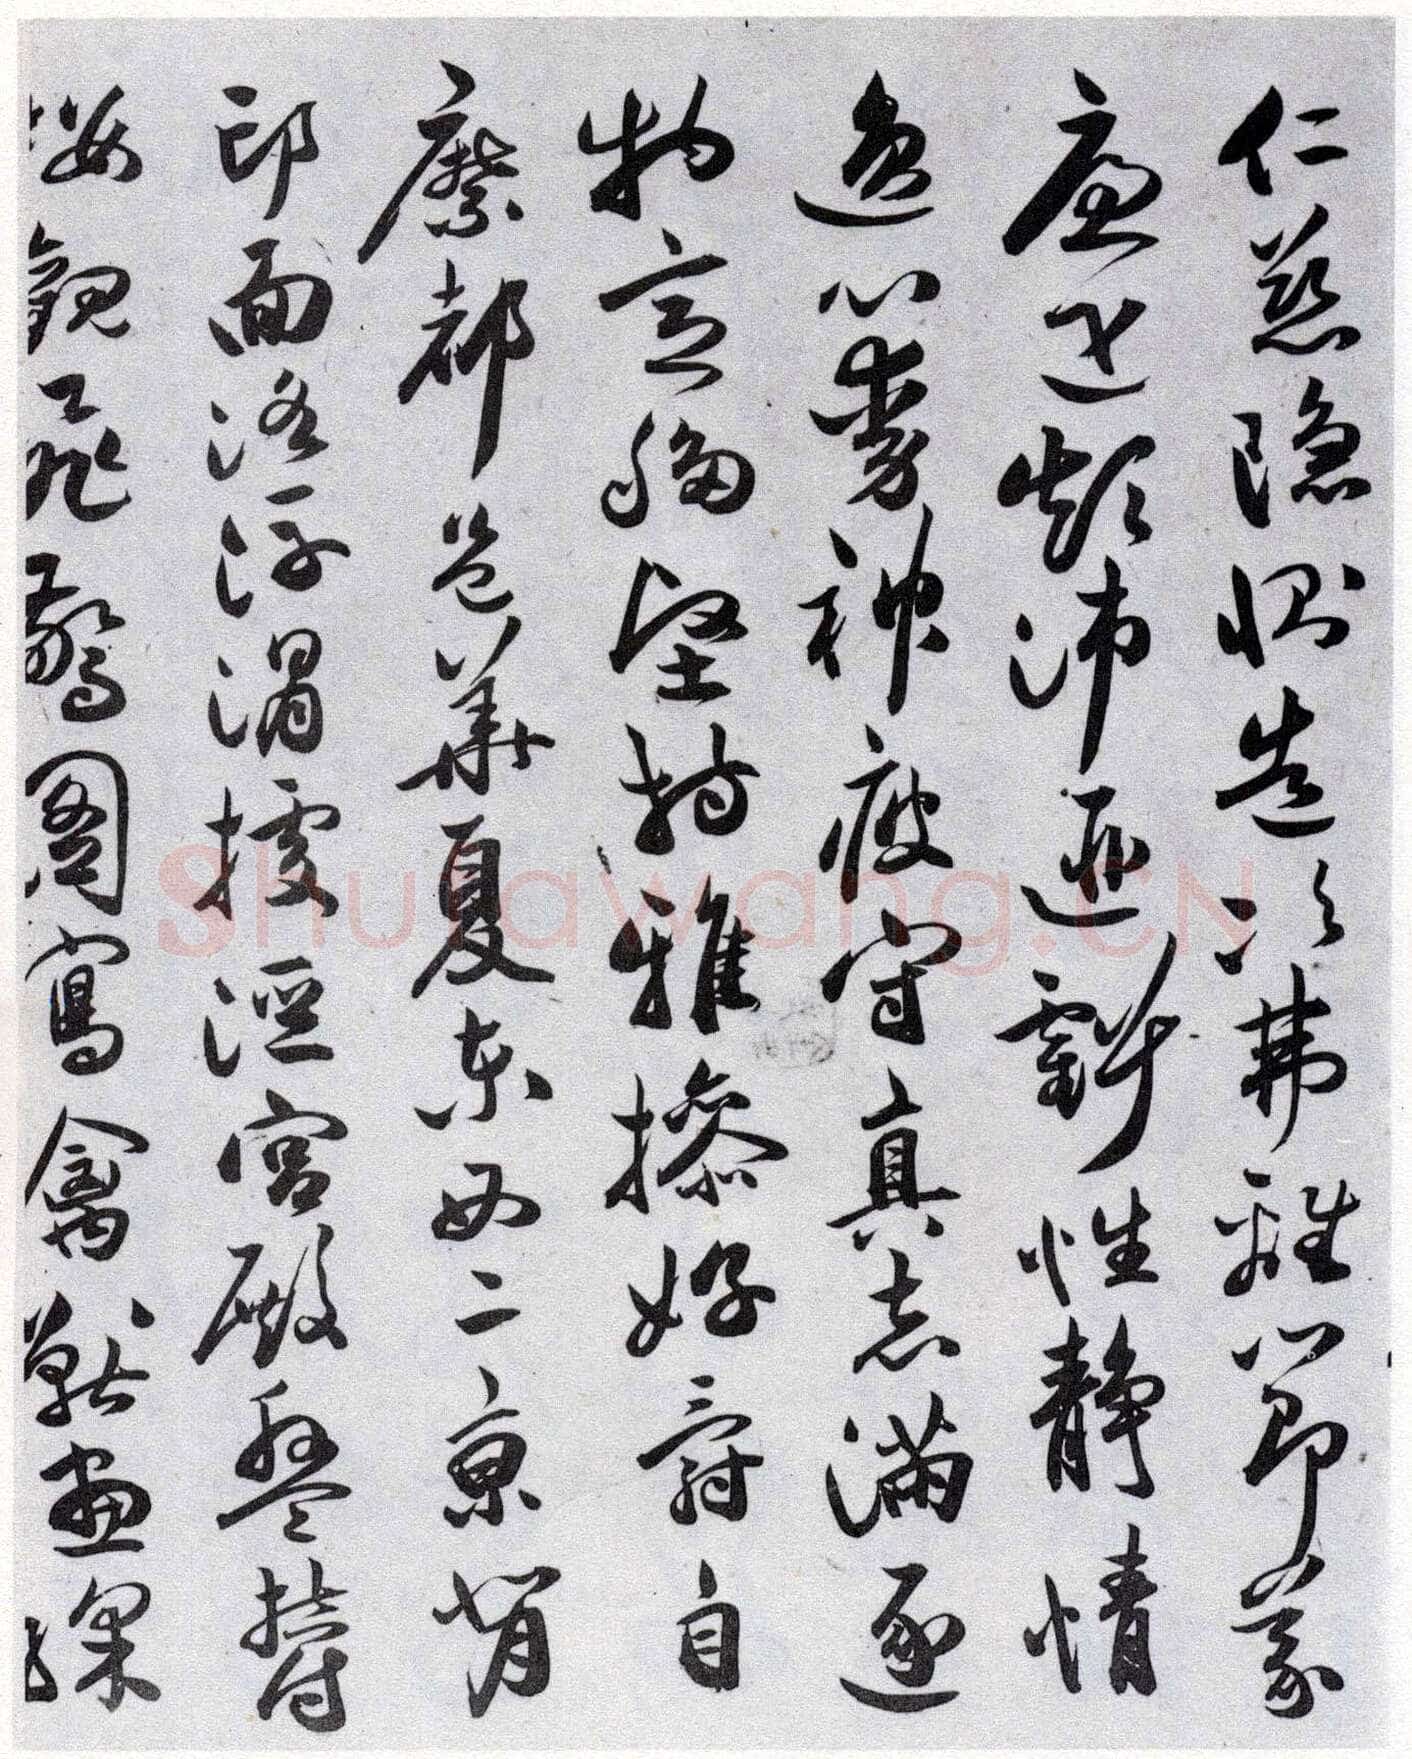 仁慈隱惻造次弗離節義
廉退顛沛匪虧性靜情
逸心動神疲守真志滿逐
物意移堅持雅操好爵自
縻都邑華夏東西二京背
邙面洛浮渭據涇宮殿盤鬱
樓觀飛驚圖寫禽獸畫綵
Shufawang.CN